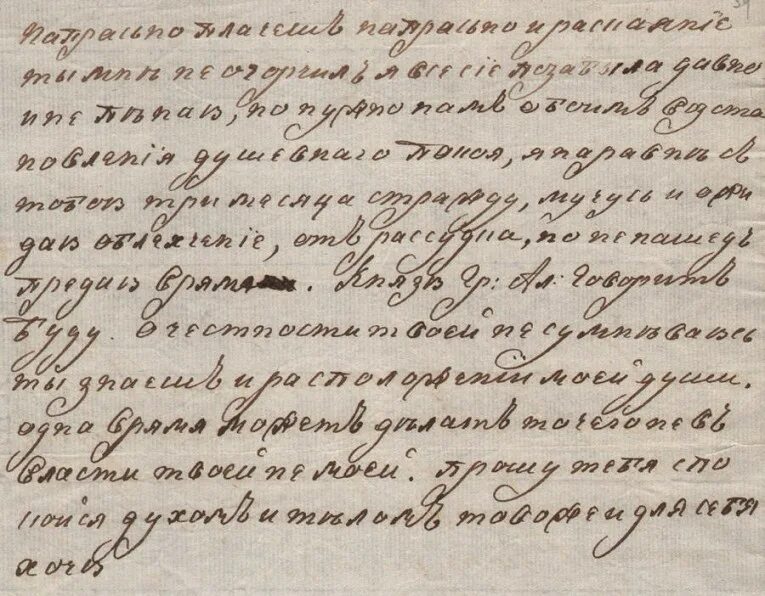 напрасьно плачешъ напрасьно ираскаянiе
ты мнѣ не огорчилъ я всiе сiе позабыла давно
и не пѣнаю, но нужно намъ обоимъ водста
новленiя душевнаго покоя, я наравнѣ съ
тобою три месяца стражду, мучусь и ожи
даю облехченiе, отъ рассудка, но не нашедъ
предаю время. Князю Гр: Ал: говорить
буду. о честности твоей не сумнѣваюсь
ты знаешъ и расположенiи моей души.
одна время можетъ дѣлать то чего не въ
власти твоей не моей. прошу тебя спо
койся духомъ и тѣломъ тово же и для себя
хочю